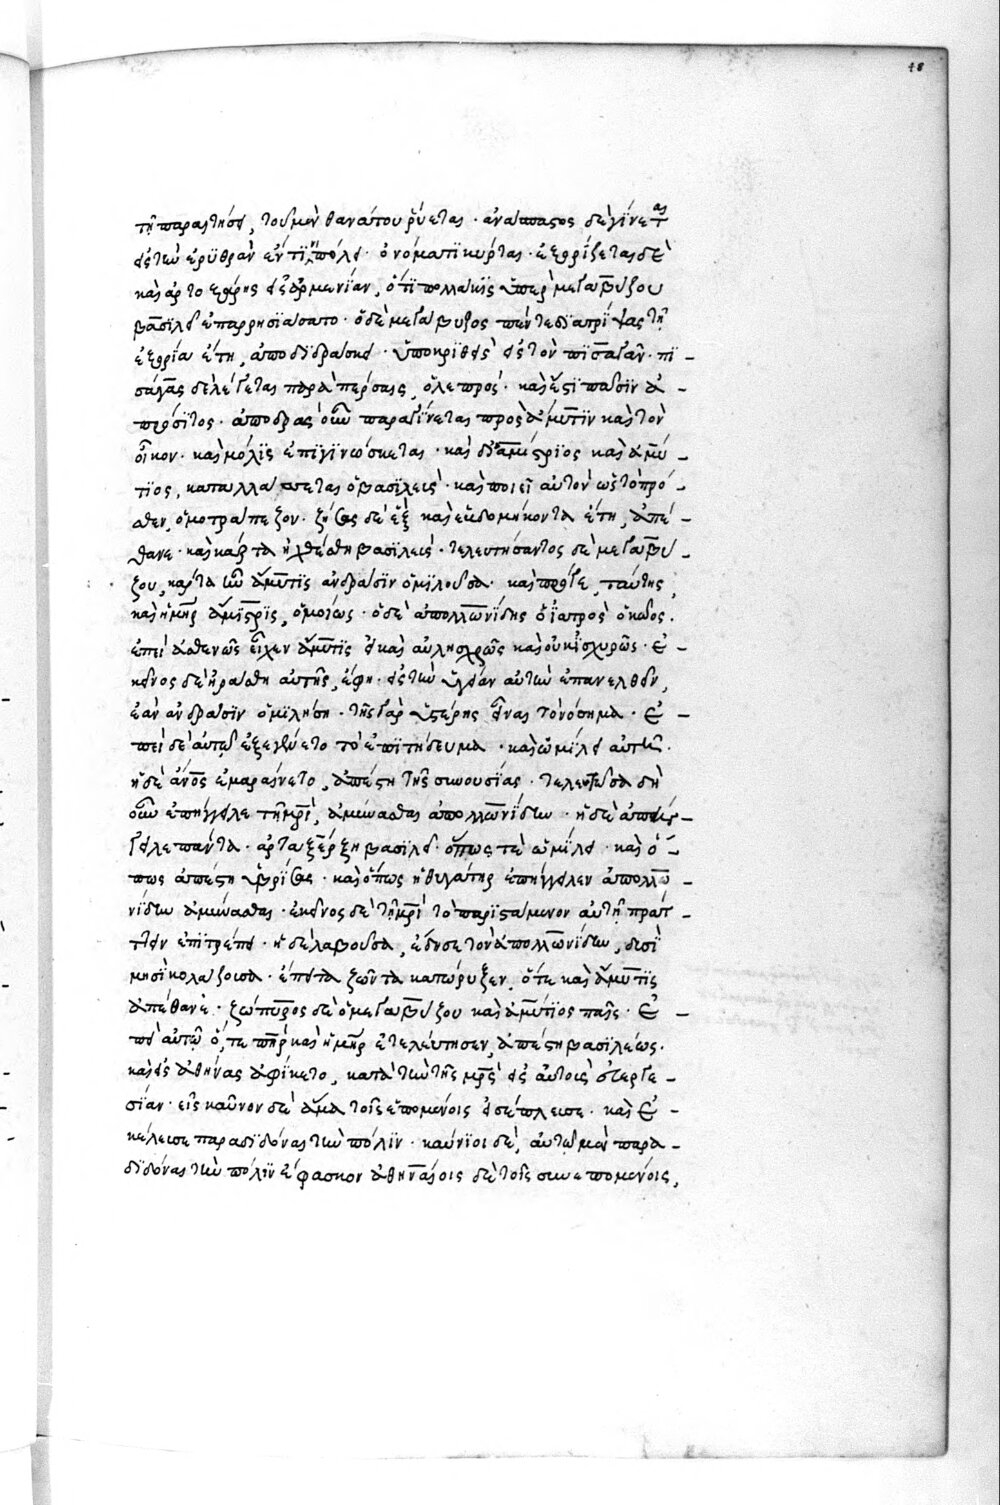 48
τῆ παραιτήσει, τοῦ μὲν θανάτου ῥύεται · ἀνάσπαστος δὲ γίνεται
εἰς τὴν ἐρυθρὰν ἔν τινι πόλει · ὀνόματι κύρται · ἐξορίζεται δὲ
καὶ ἀρτοξάρης εἰς ἀρμενίαν, ὅτι πολλάκις ὑπὲρ μεγαβύζου
βασιλεῖ ἐπαρρησιάσατο · ὁ δὲ μεγάβυζος πέντε διατρίψας τῆ
ἐξορία ἔτη, ἀποδιδράσκει · ὑποκριθεὶς εἰς τὸν πισάγαν · πι -
σάγας δὲ λέγεται παρὰ πέρσαις, ὁ λεπρός · καὶ ἔστι πᾶσιν ἀ -
πρόσιτος · ἀποδρὰς οὖν παραγίνεται πρὸς ἄμυτιν καὶ τὸν
οἶκον · καὶ μόλις ἐπιγινώσκεται · καὶ δι' ἀμίστριος καὶ ἀμύ -
τιος, καταλλάσσεται ὁ βασιλεὺς · καὶ ποιεῖ αὐτὸν ὡς τὸ πρό -
σθεν, ὁμοτράπεζον · ζήσας δὲ ἓξ καὶ ἑβδομήκοντα ἔτη, ἀπέ -
θανε · καὶ κάρτα ἠχθέσθη βασιλεύς · τελευτήσαντος δὲ μεγαβύ -
ζου, κάρτα ἦν ἄμυτις ἀνδράσιν ὁμιλοῦσα · καὶ πρό γε, ταύτης,
καὶ ἡ μήτηρ ἄμιστρις, ὁμοίως · ὁ δὲ ἀπολλωνίδης ὁ ἰατρὸς ὁ κῶος ·
ἐπεὶ ἀσθενῶς εἶχεν ἄμυτις εἰ καὶ αὐληχρῶς καὶ οὐκ ἰσχυρῶς · ἐ -
κεῖνος δὲ ἠράσθη αὐτῆς, ἔφη · εἰς τὴν ὑγείαν αὐτὴν ἐπανελθεῖν,
ἐὰν ἀνδράσιν ὁμιλήση · τῆς γὰρ ὑστέρης εἶναι τὸ νόσημα · ἐ -
πεὶ δὲ αὐτῷ ἐξεγένετο τὸ ἐπιτήδευμα · καὶ ὡμίλει αὐτῇ ·
ἡ δὲ ἄνθρωπος ἐμαραίνετο, ἀπέστη τῆς συνουσίας · τελευτῶσα δὴ
οὖν ἐπήγγειλε τῇ μητρὶ, ἀμύνασθαι ἀπολλωνίδην · ἡ δὲ ἀπαγ -
γέλλει πάντα · ἀρταξέρξη βασιλεῖ · ὅπως τὲ ὡμίλει · καὶ ὅ -
πως ἀπέστη ὑβρίσας · καὶ ὅπως ἡ θυγάτηρ ἐπήγγειλεν ἀπολλω -
νίδην ἀμύνασθαι · ἐκεῖνος δὲ τῇ μητρὶ τὸ παριστάμενον αὐτῆ πράτ -
τειν ἐπιτρέπει · ἡ δὲ λαβοῦσα, ἔδησε τὸν ἀπολλωνίδην, δυσὶ
μησὶ κολάζουσα · ἔπειτα ζῶντα κατώρυξεν, ὅτε καὶ ἄμυτις
ἀπέθανε · ζώπυρος δὲ ὁ μεγαβύζου καὶ ἀμύτιος παῖς · ἐ -
πεὶ αὐτῷ ὅ, τε πατὴρ καὶ ἡ μήτηρ ἐτελεύτησεν, ἀπέστη βασιλέως ·
καὶ εἰς ἀθήνας ἀφίκετο, κατὰ τὴν τῆς μητρὸς εἰς αὐτοὺς εὐεργε -
σίαν · εἰς καῦνον δὲ ἅμα τοῖς ἑπομένοις εἰσέπλευσε · καὶ ἐ -
κέλευσε παραδιδόναι τὴν πόλιν · καύνιοι δὲ, αὐτῷ μὲν παρα -
διδόναι τὴν πόλιν ἔφασκον ἀθηναίοις δὲ τοῖς συνεπομένοις,